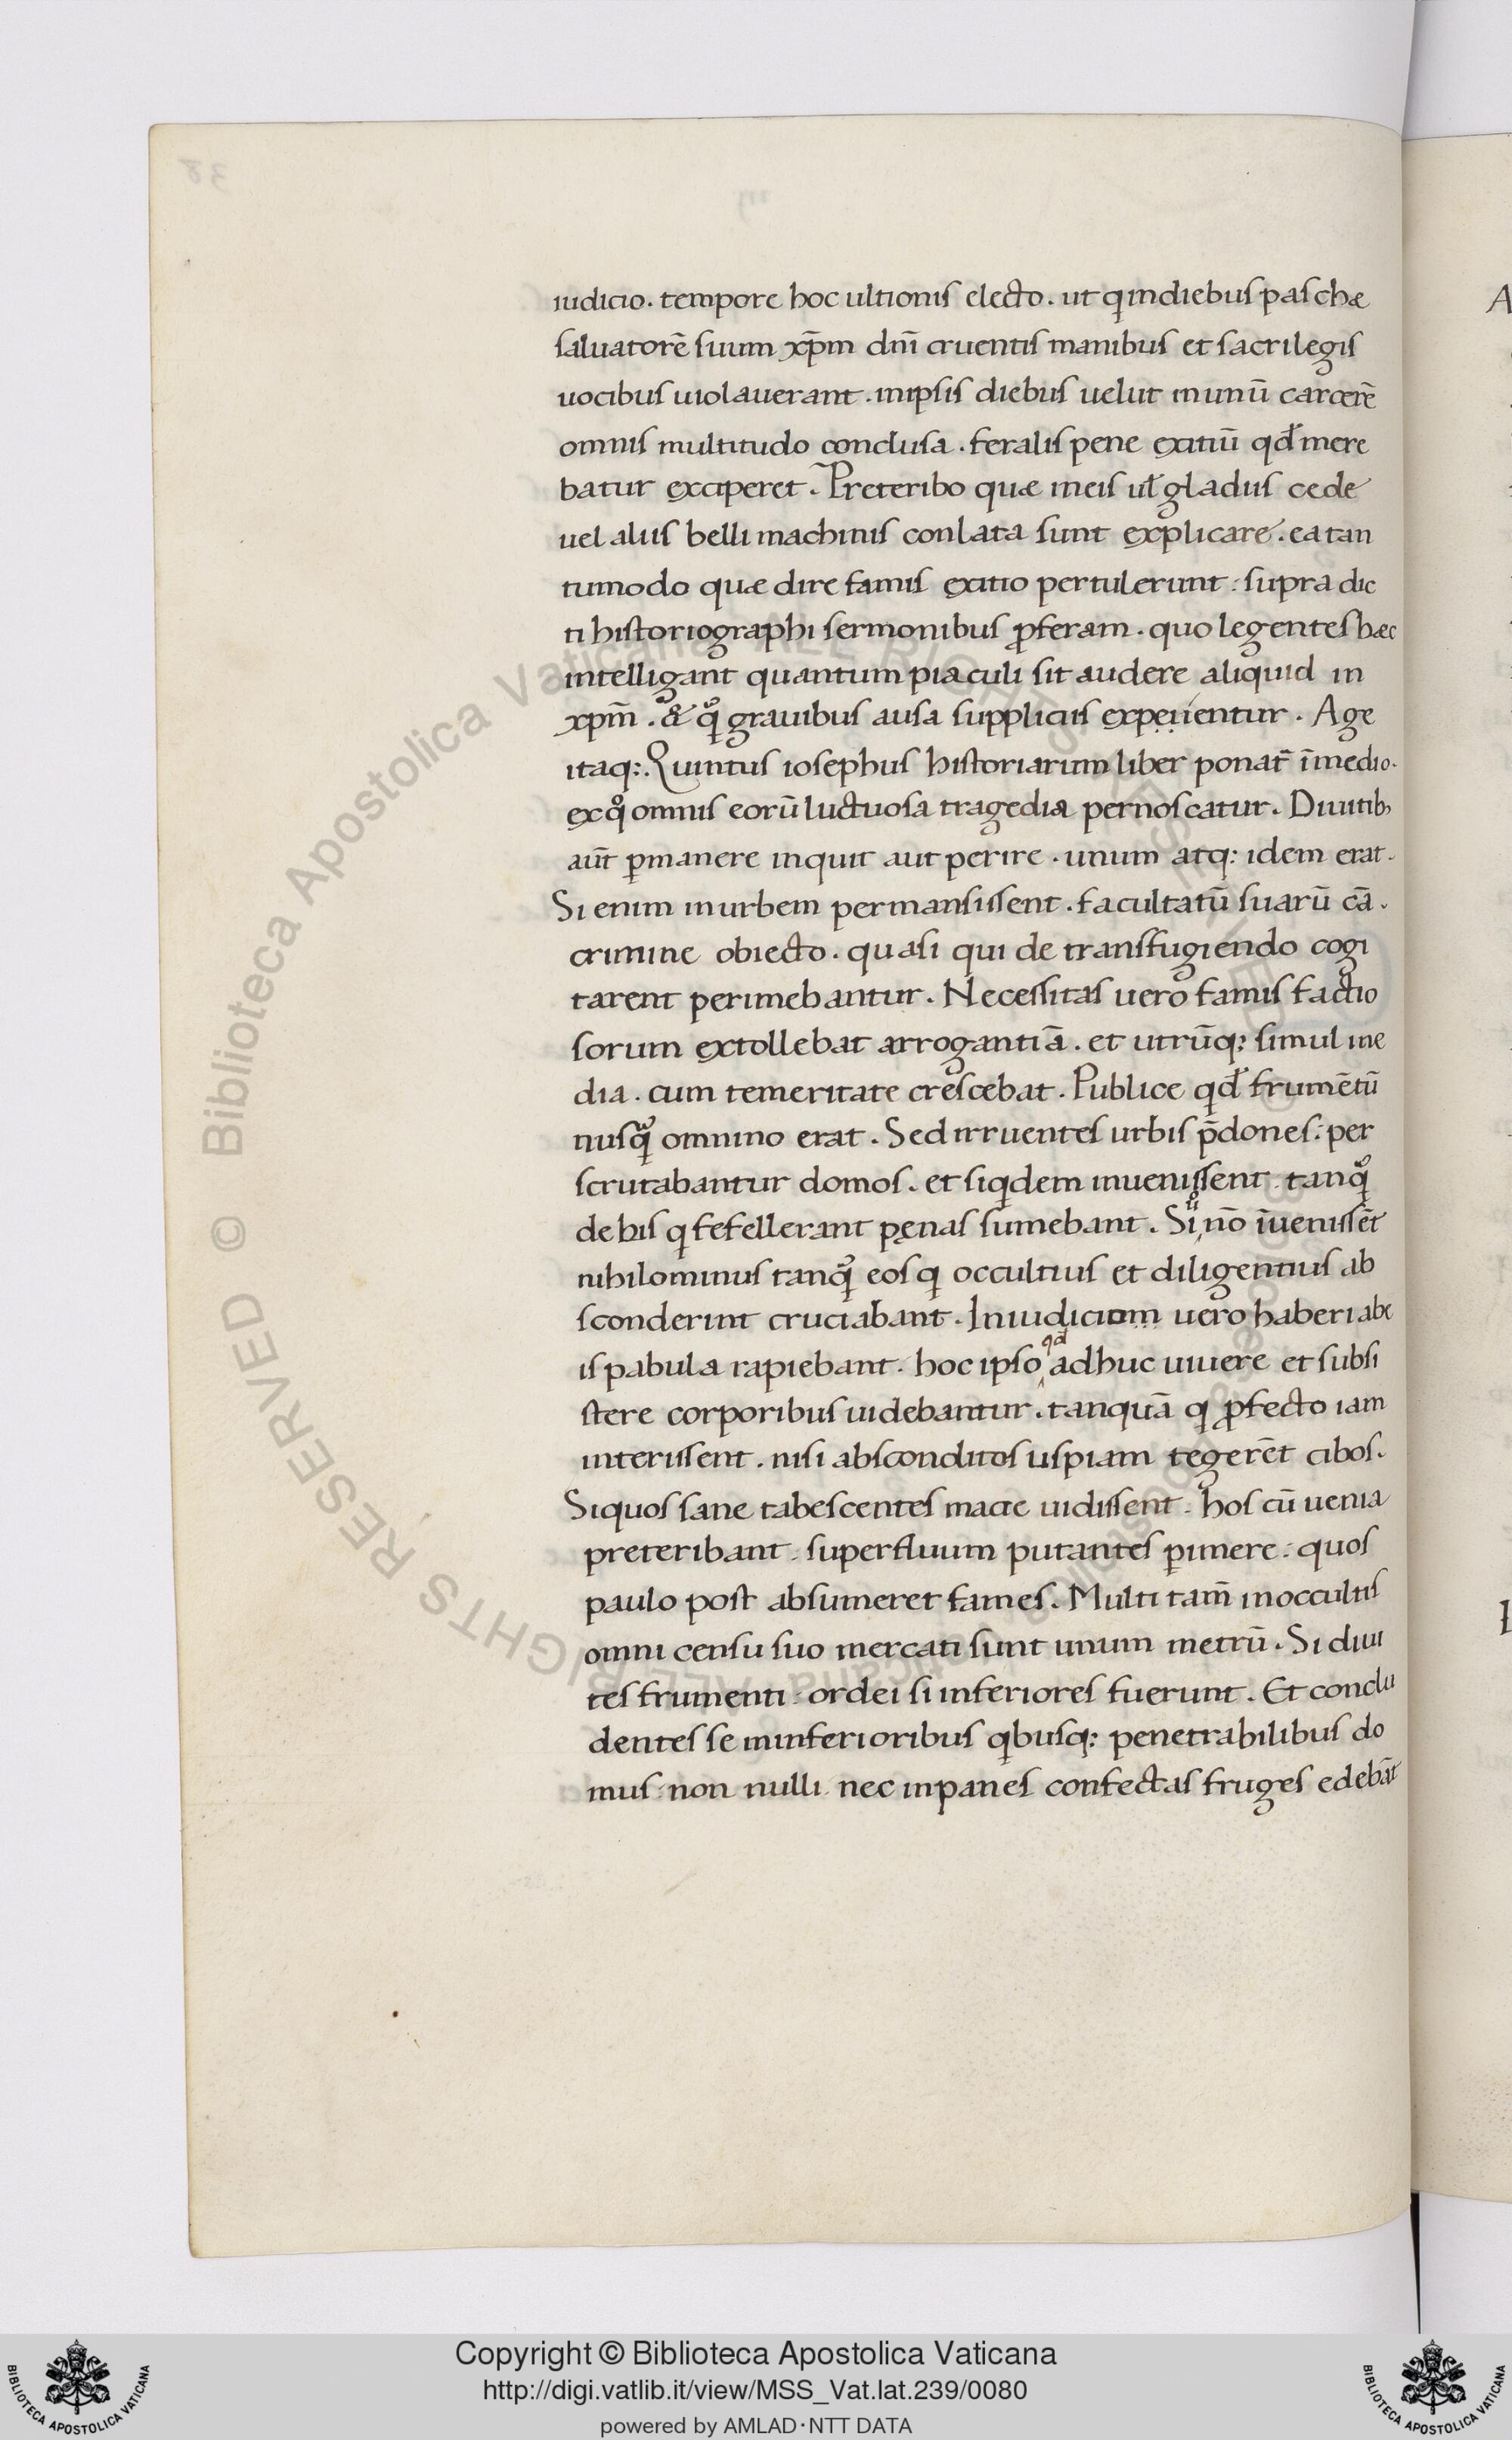 iudicio. tempore hoc ultionis electo. ut q̣ indiebus paschæ
saluatorē suum xp̄m dn̄i cruentis manibus et sacrilegis
uocibus uiolauerant. inipsis diebus uelut in unū carcerē
omnis multitudo conclusa. feralis pene exitiū qd̄ mere
batur exciperet. Preteribo quæ in eis ul̄ gladiis cede
uel aliis belli machinis conlata sunt explicare. ea tan
tumodo quæ dire famis exitio pertulerunt: supra dic
ti historiographi sermonibus ꝓferam. quo legentes hæc
intelligant quantum piaculi sit audere aliquid in
xpm̄. & qͦ grauibus ausa suppliciis expeṛịentur. Age
itaq:. Quintus iosephus historiarum liber ponat̄ īmedio.
ex qͦ omnis eorū luctuosa tragedia pernoscatur. Diuitibꝫ
aūt ꝑmanere inquit aut perire. unum atq: idem erat.
Si enim inurbem permansissent. facultatū suarū cā.
crimine obiecto. quasi qui de transfugiendo cogi
tarent perimebantur. Necessitas uero famis factio
sorum extollebat arrogantiā. et utrūq: simul ine
dia. cum temeritate crescebat. Publice qd̄ frumētū
nusqᷓ omnino erat. Sed irruentes urbis p̄dones: per
scrutabantur domos. et siqdem inuenissent. tanqᷓ
de his q fefellerant pęnas sumebant. Si ů nō īuenissēt
nihilominus tanqᷓ eos q occultius et diligentius ab
sconderint cruciabant. Iniudicium uero haberi abe
is pabula rapiebant. hoc ipso qd̄ adhuc uiuere et subsi
stere corporibus uidebantur. tanquā q ꝓfecto iam
interissent. nisi absconditos uspiam tegerēt cibos.
Siquos sane tabescentes macie uidissent. hos cū uenia
preteribant: superfluum putantes ꝑimere: quos
paulo post absumeret fames. Multi tam̄ inoccultis
omni censu suo mercati sunt unum metrū. Si diui
tes frumenti. ordei si inferiores fuerunt. Et conclu
dentes se ininferioribus qbusq: penetrabilibus do
mus. non nulli. nec inpanes confectas fruges edebāt
Copyright © Biblioteca Apostolica Vaticana
http://digi.vatlib.it/view/MSS_Vat.lat.239/0080
powered by AMLAD·NTT DATA